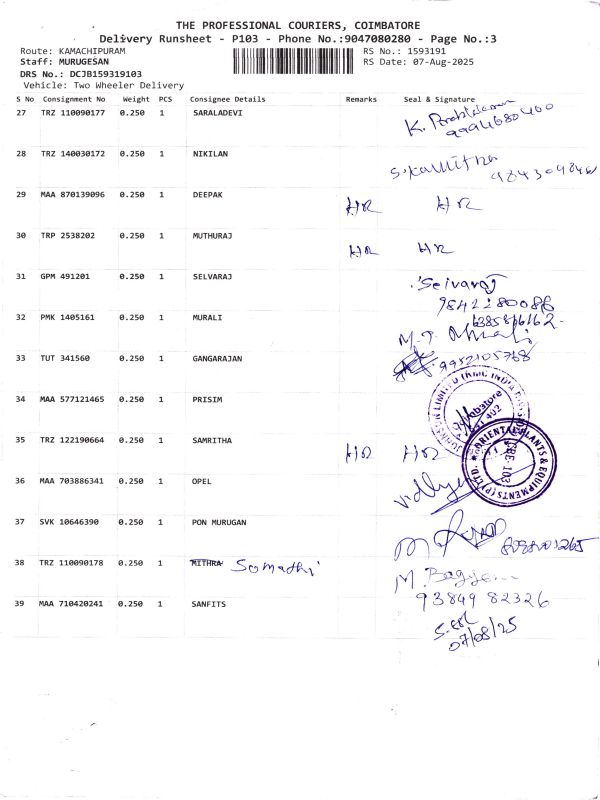 THE PROFESSIONAL COURIERS, COIMBATORE
Delivery Runsheet - P103 - Phone No.:9047080280 - Page No.:3
Route: KAMACHIPURAM RS No.: 1593191
Staff: MURUGESAN RS Date: 07-Aug-2025
DRS No.: DCJB159319103
Vehicle: Two Wheeler Delivery
S No Consignment No Weight PCS Consignee Details Remarks Seal & Signature
27 TRZ 110090177 0.250 1 SARALADEVI
9994680400
28 TRZ 140030172 0.250 1 NIKILAN
29 MAA 870139096 0.250 1 DEEPAK HR HR
30 TRP 2538202 0.250 1 MUTHURAJ HR HR
31 GPM 491201 0.250 1 SELVARAJ Selvaraj
9842280086
32 PMK 1405161 0.250 1 MURALI
33 TUT 341560 0.250 1 GANGARAJAN 9952105768
34 MAA 577121465 0.250 1 PRISIM
35 TRZ 122190664 0.250 1 SAMRITHA HR HR
ORIENTAL PLANTS & EQUIPMENTS (P) LTD.
CBE-103
36 MAA 703886341 0.250 1 OPEL vidhya
37 SVK 10646390 0.250 1 PON MURUGAN
38 TRZ 110090178 0.250 1 MITHRA Sumathi
M.
93849 82326
39 MAA 710420241 0.250 1 SANFITS
07/08/25